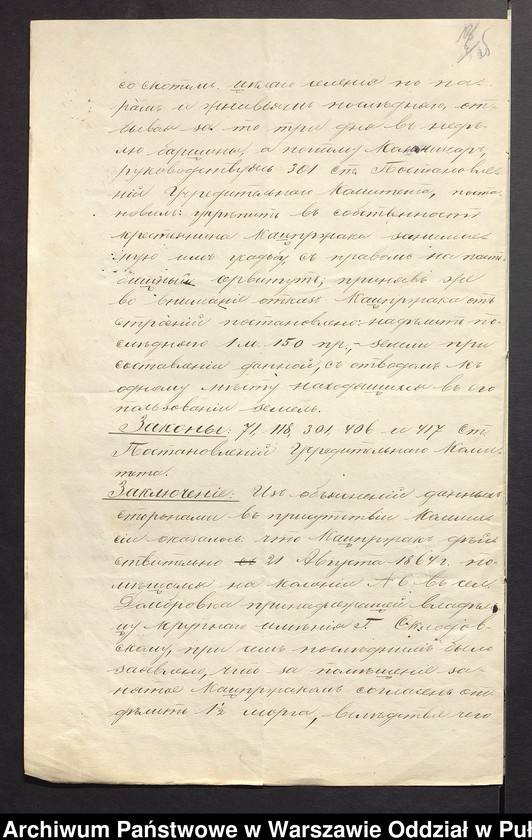 со скотомъ цѣлаго селенія по па-
рамъ и жнивьямъ послѣдняго, от-
бывая за то три дня въ недѣ-
лю барщины, а потому Коммисаръ,
руководствуясь 301 ст. Постановле-
ній Учредительнаго Комитета, поста-
новилъ: укрѣпить въ собственность
крестьянина Мацпрука занимае-
мую имъ усадьбу съ правомъ на паст-
бищный сервитутъ; принявъ же
во вниманіе отказъ Мацпрука отъ
постановлено: надѣлить по-
слѣдняго 1 м. 150 пр., земли при
составленіи данной, съ отводомъ къ
одному мѣсту находящихся въ его
пользованіи земель.
Законы: 71, 118, 301, 406 и 417 ст.
Постановленій Учредительнаго Коми-
тета.
Заключеніе: Изъ объясненій данныхъ
сторонами въ присутствіи Коммис-
сіи оказалось: что Мацпрукъ дѣй-
ствительно 21 Августа 1864 г. по-
мѣщался на колоніи № 6 въ сел.
Домбровка принадлежащей владѣль-
цу крупнаго имѣнія Г. Склодов-
скому, при чемъ послѣднимъ было
заявлено, что за помѣщеніе за-
нятое Мацпрукомъ согласенъ от-
дѣлить 1½ морга, вслѣдствіе чего
Archiwum Państwowe w Warszawie Oddział w Pu